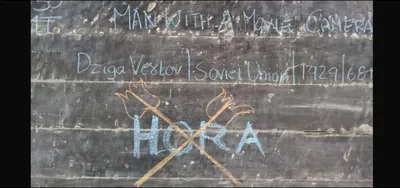 MAN WITH A MOVIE CAMERA
Dziga Vertov | Soviet Union | 1929 | 68
HORA